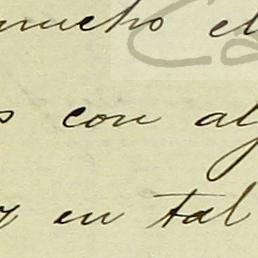 mucho el
s con al
y en tal